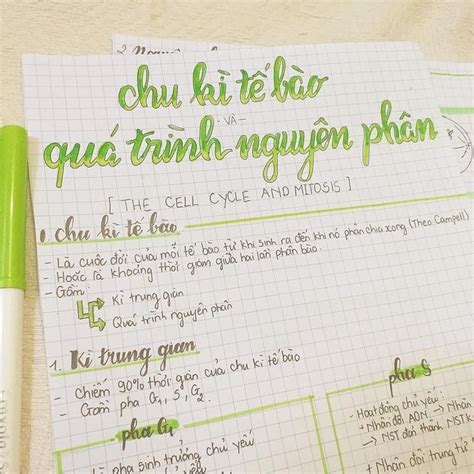 chu kì tế bào
- VÀ -
quá trình nguyên phân
[ THE CELL CYCLE AND MITOSIS ]
I. chu kì tế bào
- Là cuộc đời của mỗi tế bào từ khi sinh ra đến khi nó phân chia xong (Theo Campell)
- Hoặc là khoảng thời gian giữa hai lần phân bào.
- Gồm:
Kì trung gian
Quá trình nguyên phân
1. Kì trung gian
- Chiếm 90% thời gian của chu kì tế bào
- Gồm pha G1, S, G2.
pha G1
là pha sinh trưởng chủ yếu
pha S
- Hoạt động chủ yếu:
+ Nhân đôi ADN → Nhân
→ NST đơn thành NST k
Nhân đôi trung tử